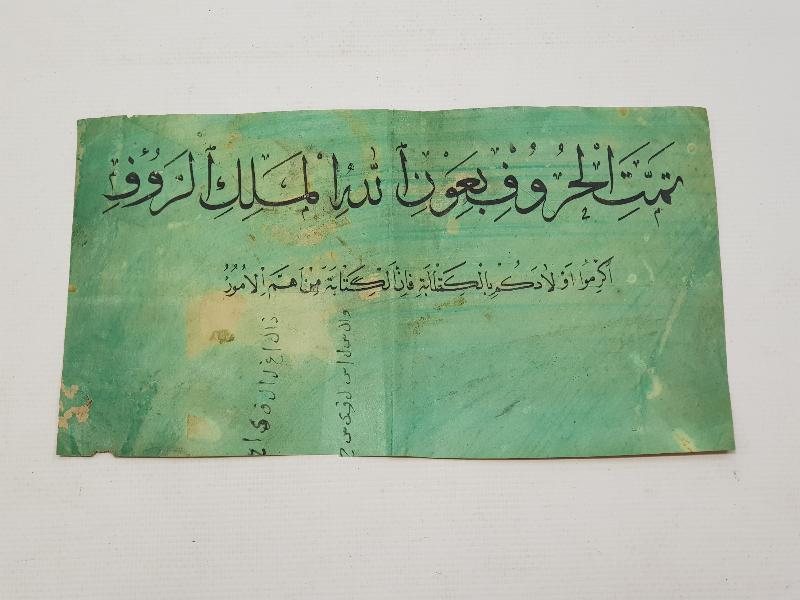 تمَّتِ الْحُرُوفْ بِعَوْنِ ٱللهِ الْمَلِكِ ٱلرَؤُفِ
اَكْرِمُوا اَوْلَادَكُمْ بِالْكِتَابَةِ فَاِنَّ الْكِتَابَةَ مِنْ اَهَمِّ الْاُمُورْ